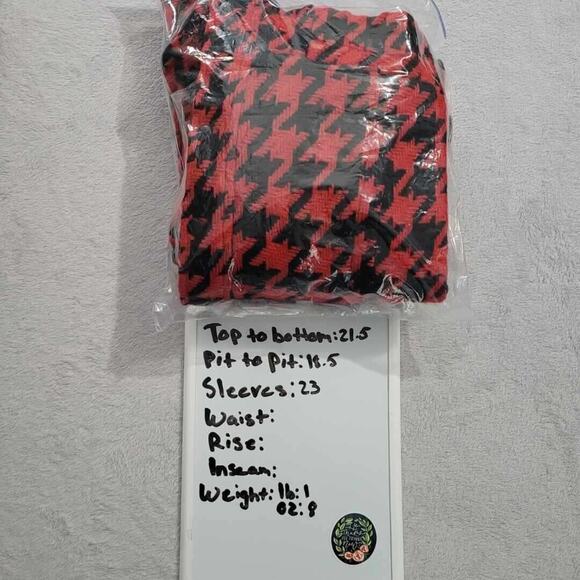 Top to bottom:21.5
Pit to Pit:18.5
Sleeves:23
Waist:
Rise:
Inseam:
Weight: lb:1
oz:8